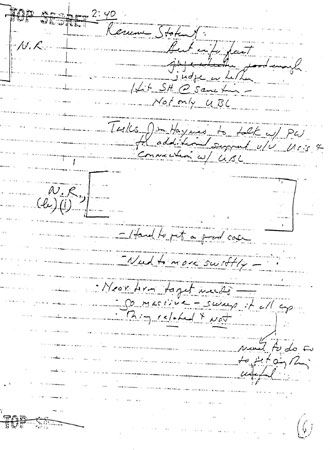 TOP SECRET 2:40
Resume Statement:
N.R. Best info fast
good enough
judge whether
Hit SH @ same time -
Not only UBL
Tasks Jim Haynes to talk w/ PW
for additional support v/v &
connection w/ UBL
N.R.,
(b)(1)
- Hard to get a good case
- Need to move swiftly -
- Near term target needs -
- go massive - sweep it all up
Things related & not
need to do so
to get anything
useful
TOP SE
6